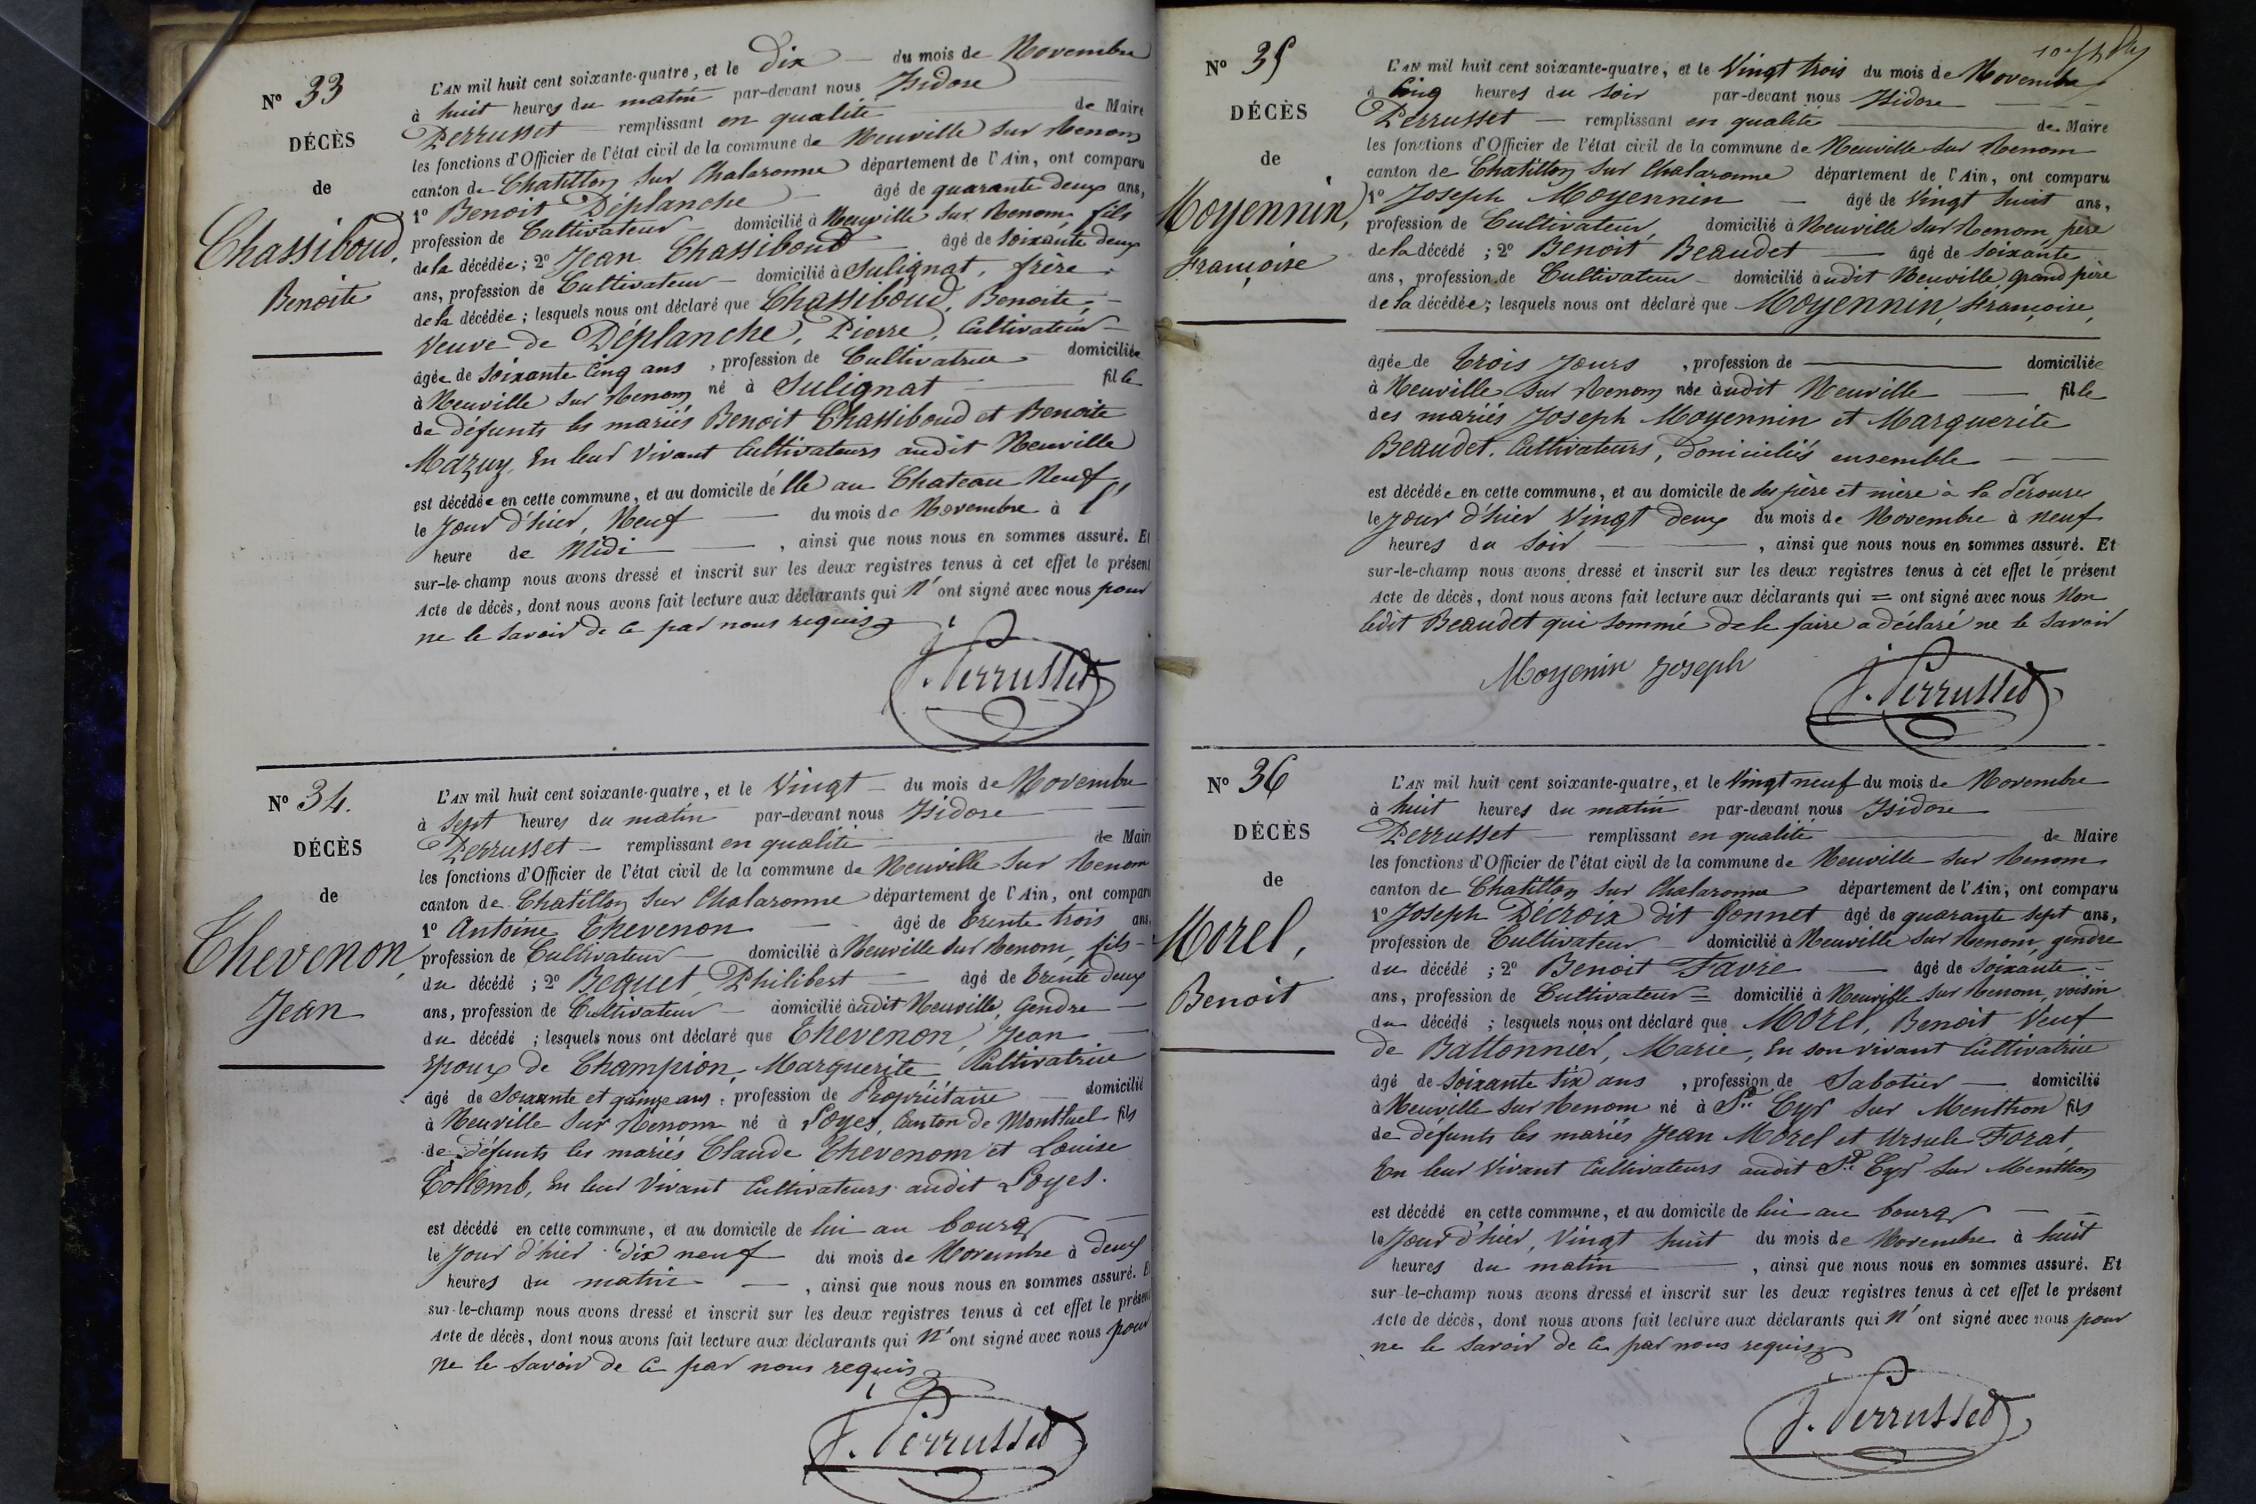 N° 33
DÉCÈS
de
Chassiboud,
Benoite
L'AN mil huit cent soixante-quatre, et le Dix — du mois de Novembre
à huit heures du matin par-devant nous Isidore
Perrusset — remplissant en qualité — de Maire
les fonctions d'Officier de l'état civil de la commune de Neuville sur Renom
canton de Chatillon sur Chalaronne département de l'Ain, ont comparu
1° Benoit Déplanche — âgé de quarante deux ans,
profession de Cultivateur — domicilié à Neuville sur Renom, fils
de la décédée ; 2° Jean Chassiboud — âgé de soixante deux
ans, profession de Cultivateur — domicilié à Sulignat, frère
de la décédée ; lesquels nous ont déclaré que Chassiboud, Benoite, —
Veuve de Déplanche, Pierre, Cultivateur —
âgée de soixante cinq ans, profession de Cultivatrice — domiciliée
à Neuville sur Renom né à Sulignat — fille
de défunts les mariés Benoit Chassiboud et Benoite
Mazuy, En leur Vivant Cultivateurs audit Neuville
est décédée en cette commune, et au domicile d'elle au Chateau Neuf
le Jour d'hier, Neuf — du mois de Novembre à l'
heure de Midi — , ainsi que nous nous en sommes assuré. Et
sur-le-champ nous avons dressé et inscrit sur les deux registres tenus à cet effet le présent
Acte de décès, dont nous avons fait lecture aux déclarants qui n'ont signé avec nous pour
ne le savoir de ce par nous requis
J. Perrusset
N° 34.
DÉCÈS
de
Thevenon,
Jean
L'AN mil huit cent soixante-quatre, et le Vingt — du mois de Novembre
à Sept heures du matin par-devant nous Isidore —
Perrusset — remplissant en qualité — de Maire
les fonctions d'Officier de l'état civil de la commune de Neuville sur Renom
canton de Chatillon sur Chalaronne département de l'Ain, ont comparu
1° Antoine Thevenon — âgé de trente trois ans,
profession de Cultivateur — domicilié à Neuville sur Renom, fils —
du décédé ; 2° Bequet, Philibert — âgé de trente deux
ans, profession de Cultivateur — domicilié audit Neuville, Gendre —
du décédé ; lesquels nous ont déclaré que Thevenon, Jean —
Epoux de Champion, Marguerite, Cultivatrice
âgé de Soixante et quinze ans, profession de Propriétaire — domicilié
à Neuville sur Renom né à Loyes, Canton de Montluel fils
de défunts les mariés Claude Thevenon et Louise
Collomb, En leur Vivant Cultivateurs audit Loyes.
est décédé en cette commune, et au domicile de lui au bourg —
le Jour d'hier Dix neuf du mois de Novembre à deux
heures du matin — , ainsi que nous nous en sommes assuré. Et
sur-le-champ nous avons dressé et inscrit sur les deux registres tenus à cet effet le présent
Acte de décès, dont nous avons fait lecture aux déclarants qui n'ont signé avec nous pour
ne le savoir de ce par nous requis
J. Perrusset
N° 35
DÉCÈS
de
Moyennin,
Françoise
L'AN mil huit cent soixante-quatre, et le Vingt trois du mois de Novembre
à Cinq heures du soir par-devant nous Isidore —
Perrusset — remplissant en qualité — de Maire
les fonctions d'Officier de l'état civil de la commune de Neuville sur Renom
canton de Chatillon sur Chalaronne département de l'Ain, ont comparu
1° Joseph Moyennin — âgé de Vingt huit ans,
profession de Cultivateur, domicilié à Neuville sur Renom, père
de la décédé ; 2° Benoit Beaudet — âgé de soixante
ans, profession de Cultivateur — domicilié audit Neuville, grand père
de la décédée ; lesquels nous ont déclaré que Moyennin, Françoise,
âgée de trois Jours, profession de — domiciliée
à Neuville sur Renom née audit Neuville — fille
des mariés Joseph Moyennin et Marguerite
Beaudet, Cultivateurs, Domiciliés ensemble —
est décédée en cette commune, et au domicile de ses père et mère à la Pérouse
le Jour d'hier Vingt deux du mois de Novembre à neuf
heures du soir — , ainsi que nous nous en sommes assuré. Et
sur-le-champ nous avons dressé et inscrit sur les deux registres tenus à cet effet le présent
Acte de décès, dont nous avons fait lecture aux déclarants qui = ont signé avec nous Non
ledit Beaudet qui sommé de le faire a déclaré ne le savoir
Moyenin Joseph
J. Perrusset
N° 36
DÉCÈS
de
Morel,
Benoit
L'AN mil huit cent soixante-quatre, et le Vingt neuf du mois de Novembre
à huit heures du matin par-devant nous Isidore
Perrusset — remplissant en qualité — de Maire
les fonctions d'Officier de l'état civil de la commune de Neuville sur Renom
canton de Chatillon sur Chalaronne département de l'Ain, ont comparu
1° Joseph Décroix dit Gonnet âgé de quarante sept ans,
profession de Cultivateur — domicilié à Neuville sur Renom, gendre
du décédé ; 2° Benoit Favre — âgé de soixante —
ans, profession de Cultivateur = domicilié à Neuville sur Renom, voisin
du décédé ; lesquels nous ont déclaré que Morel, Benoit, Veuf
de Battonnier, Marie, En son vivant Cultivatrice
âgé de soixante six ans, profession de Sabotier — domicilié
à Neuville sur Renom né à St. Cyr sur Menthon fils
de défunts les mariés Jean Morel et Ursule Forat,
En leur Vivant Cultivateurs audit St. Cyr sur Menthon
est décédé en cette commune, et au domicile de lui au bourg —
le Jour d'hier, Vingt huit du mois de Novembre à huit
heures du matin — , ainsi que nous nous en sommes assuré. Et
sur-le-champ nous avons dressé et inscrit sur les deux registres tenus à cet effet le présent
Acte de décès, dont nous avons fait lecture aux déclarants qui n'ont signé avec nous pour
ne le savoir de ce par nous requis
J. Perrusset